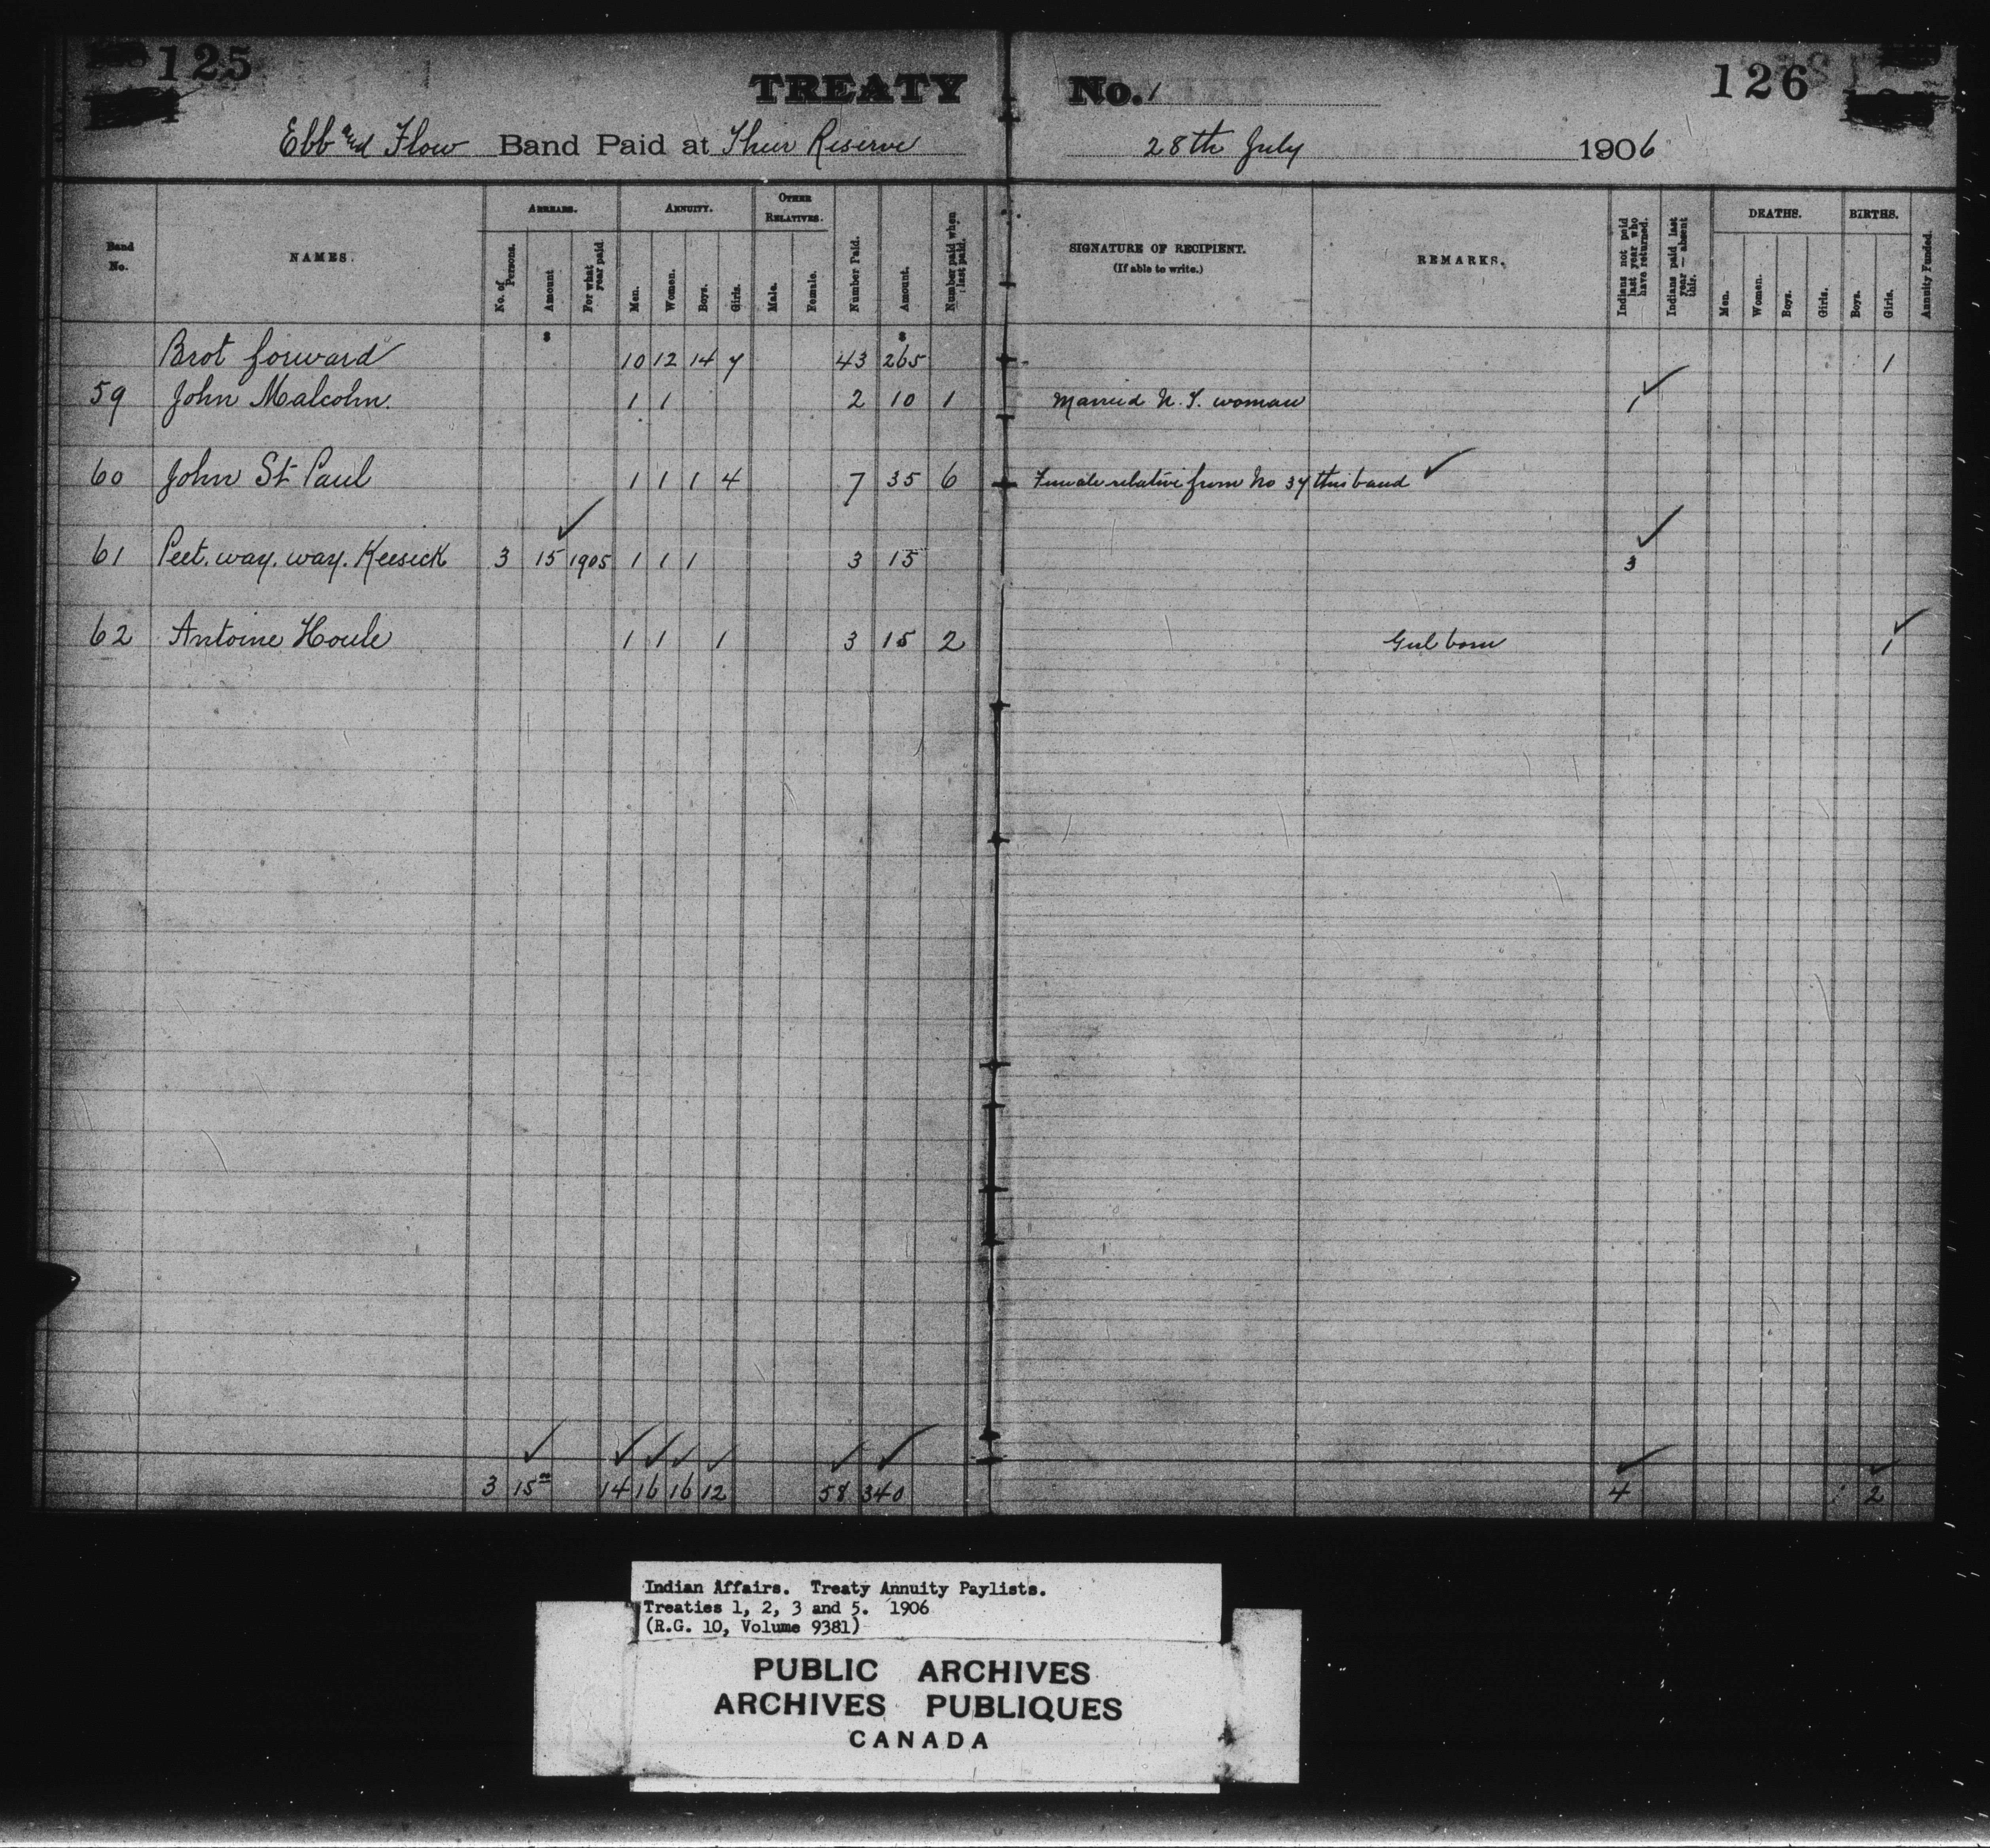 125
126
TREATY No. 1
Ebb and Flow Band Paid at Their Reserve 28th July 1906
Band No.
NAMES.
ARREARS.
No. of Persons.
Amount
For what year paid.
ANNUITY.
Men.
Women.
Boys.
Girls.
OTHER RELATIVES.
Male.
Female.
Number Paid.
Amount.
Number paid when last paid.
SIGNATURE OF RECIPIENT.
(If able to write.)
REMARKS.
Indians not paid last year who have returned.
Indians paid last year — absent this.
DEATHS.
Men.
Women.
Boys.
Girls.
BIRTHS.
Boys.
Girls.
Annuity Funded.
$ $
Brot forward 10 12 14 7 43 265 1
59 John Malcolm. 1 1 2 10 1 Married N. T. woman 1
60 John St Paul 1 1 1 4 7 35 6 Female relative from No 37 this band
61 Peet. way. way. Keesick 3 15 1905 1 1 1 3 15 3
62 Antoine Houle 1 1 1 3 15 2 Girl born 1
3 15 00 14 16 16 12 58 340 4 2
Indian Affairs. Treaty Annuity Paylists.
Treaties 1, 2, 3 and 5. 1906
(R.G. 10, Volume 9381)
PUBLIC ARCHIVES
ARCHIVES PUBLIQUES
CANADA